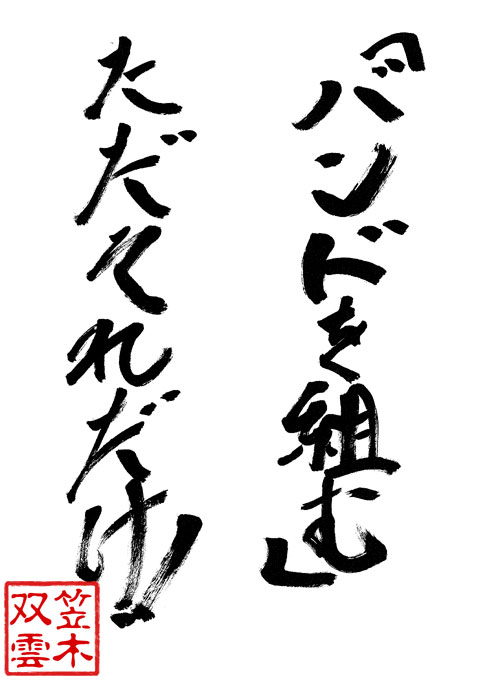 「バンドを組む」
ただそれだけ!
笠木
双雲